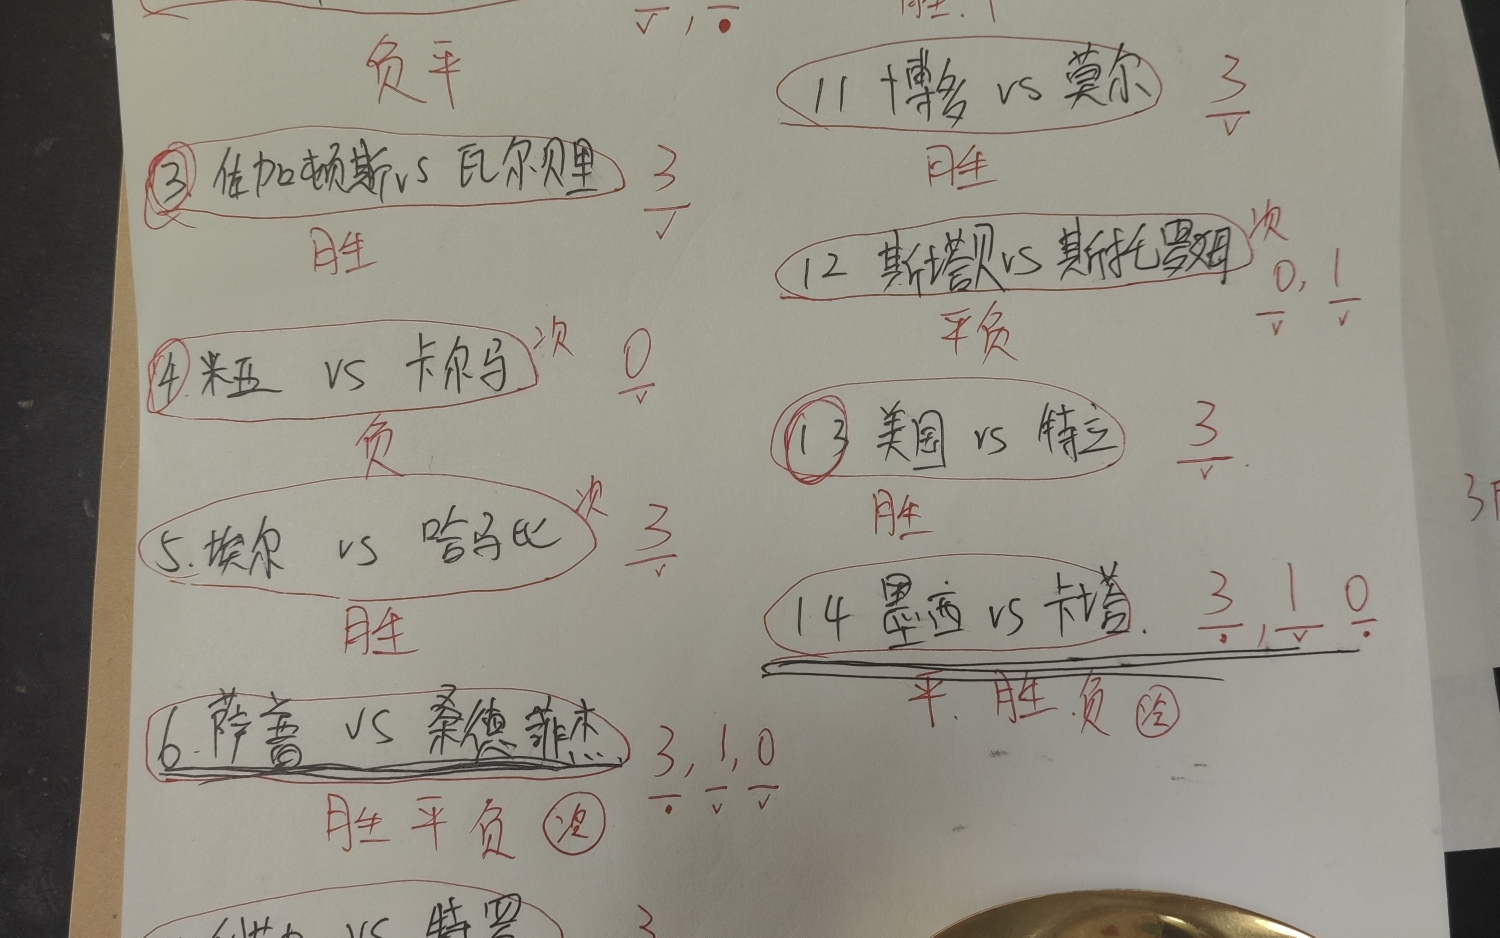 负平
3 佐加顿斯vs瓦尔贝里 3
胜
4.米亚 vs 卡尔马 次 0
负
5.埃尔 vs 哈马比 次 3
胜
6.萨普 vs 桑德菲杰 3,1,0
胜平负
vs 特罗 3
11 博多 vs 莫尔 3
胜
12 斯塔贝vs斯托罗姆 次 0,1
平负
13 美国 vs 特立 3
胜
14 墨西 vs 卡塔. 3,1 0
平.胜.负